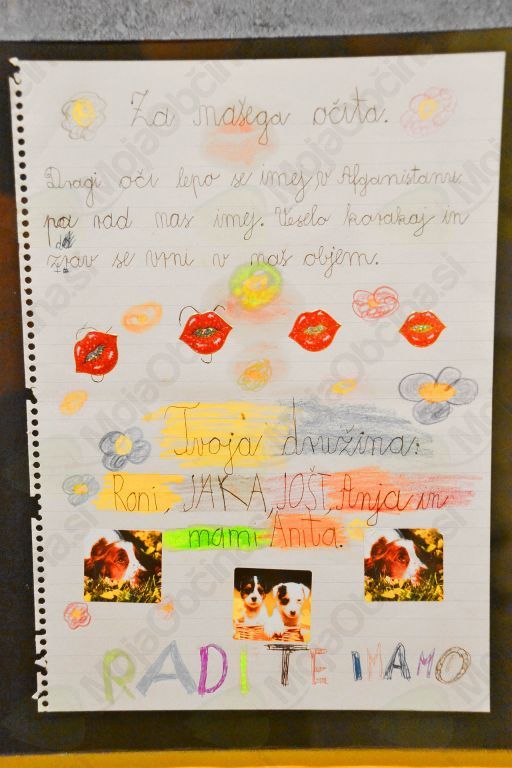 Za našega očita.
Dragi oči lepo se imej v Afganistanu
pa rad nas imej. Veselo korakaj in
zdrav se vrni v naš objem.
Tvoja družina:
Roni, JAKA, JOŠT, Anja in
mami Anita.
RADI TE IMAMO
MojaObčina.si